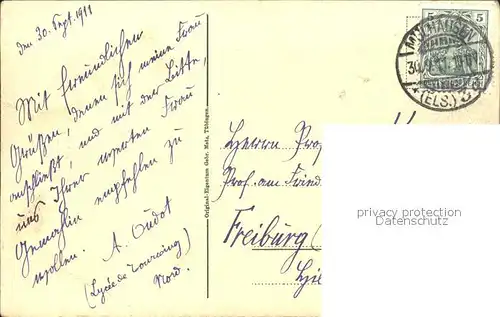 den 30. Sept. 1911
Mit freundlichen
Grüßen, denen sich meine Frau
anschließt, und mit der Bitte,
uns Ihrer werten Frau
Gemahlin empfehlen zu
wollen.
A. Oudot
(Lycée de Tourcoing)
Nord.
Original-Eigentum Gebr. Metz, Tübingen.
5 5
MÜLHAUSEN
(ELS.)
Herrn Prof
Prof. am Fried
Freiburg (
privacy protection
Datenschutz